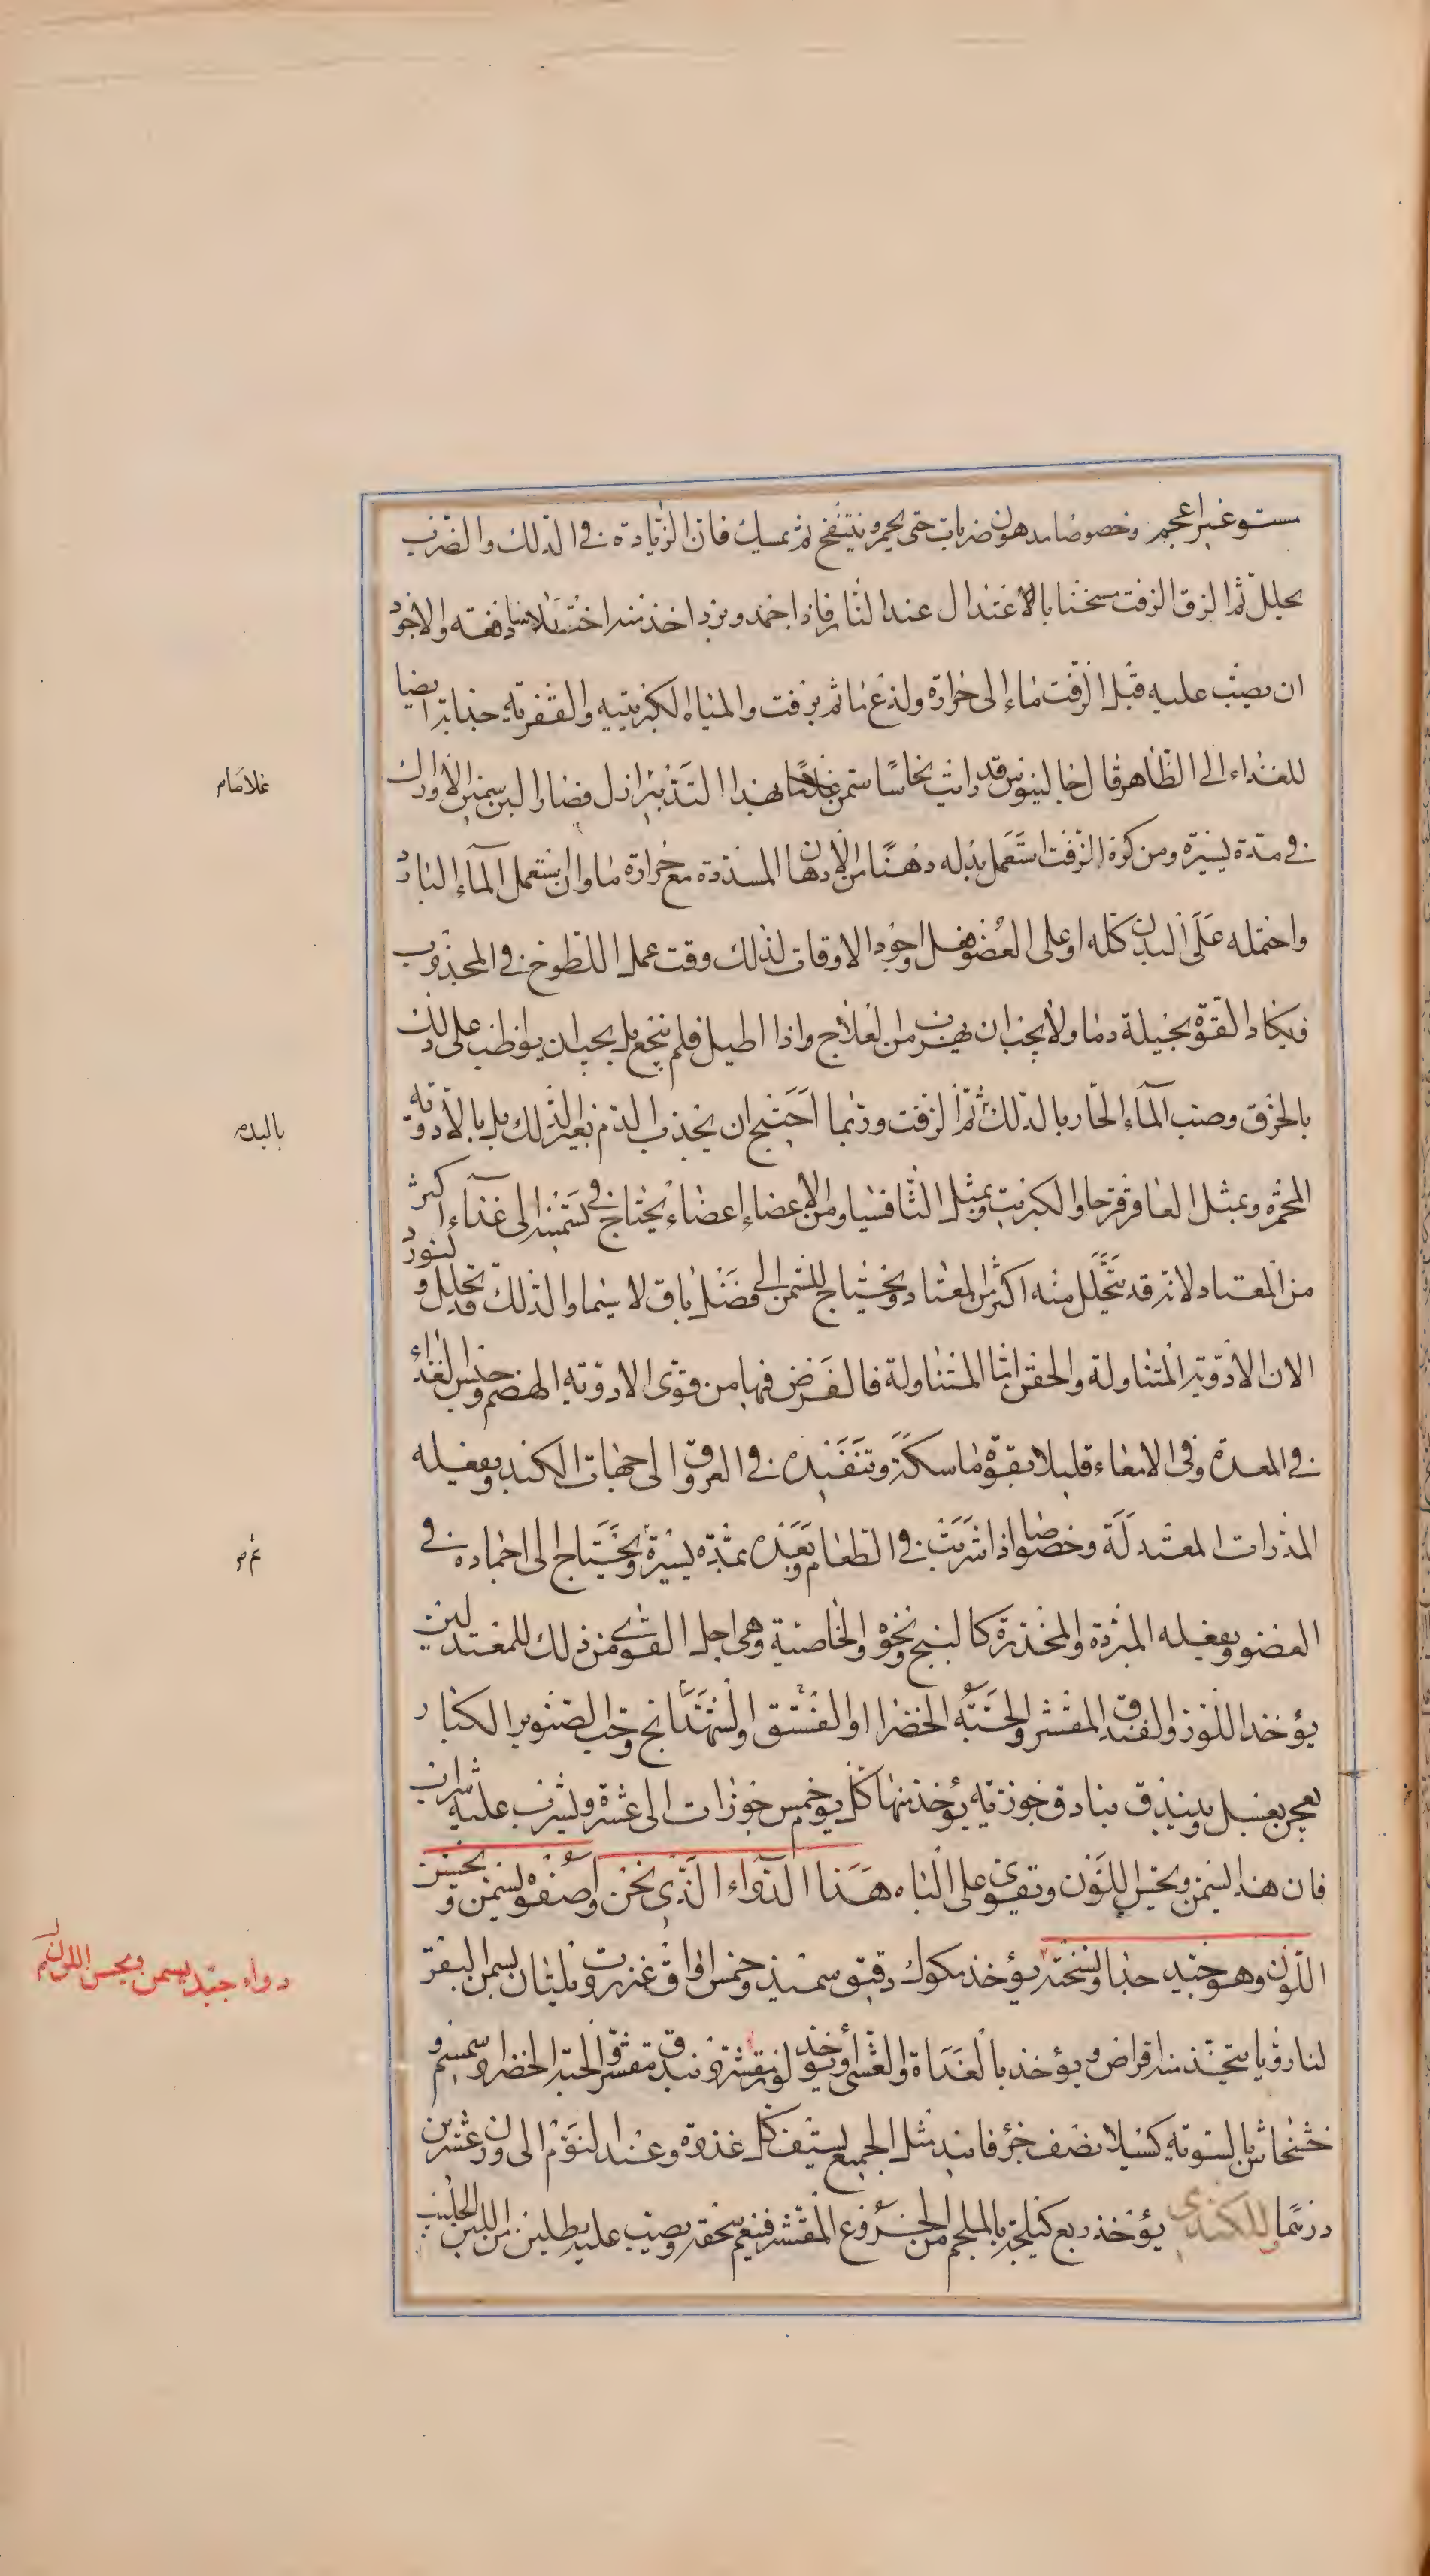 مستو غير اعجم وخصوصا مدهون ضربات حتى يحمر وينتفخ ثم يمسك فان الزيادة في الدلك والضرب
يحلل ثم الزق الزفت مسخنا بالاعتدال عند النار فاذا جمد وبرد اخذ منه اختلاسا دفعته والاجود
ان يصب عليه قبل الزفت ماء الى حرارة ولذع ما ثم يزفت والمياه الكبريتيه والقفريه جذابه ايضا
للغذاء الى الظاهر قال جالينوس قد رايت نخاسا سمن غلاما بهذا التدبير ازل فصار البن سمين الاوراك
في مدة يسيرة ومن كره الزفت استعمل بدله دهنا من الادهان المسددة مع حرارة ما وان يستعمل الماء البارد
واحتمله على البدن كله او على العضو فعل واجود الاوقات لذلك وقت عمل اللطوخ في المجذوب
فيكاد القوة بجيلة دما ولا يجب ان يهرب من العلاج واذا اطيل فلم ينجع بل يجب ان يواظب على ذلك
بالخرق وصب الماء الحار بالدلك ثم الزفت وربما احتيج ان يجذب الدم بغير الدلك بل بالادويه
المحمره وبمثل العاقرقرحا والكبريت وبمثل الثافسيا ومن الاعضاء اعضاء يحتاج في تسمينه الى غذاء اكثر
من المعتاد لانه قد يتحلل منه اكثر من المعتاد ويحتاج للسمن الى فضل باق لا سيما والدلك قد يحلل ولنورد
الان الادوية المتناولة والحقن اما المتناولة فالغرض فيها من قوى الادويه الهضم وحبس الغذاء
في المعدة وفي الامعاء قليلا بقوة ماسكة وتنفيذه في العروق الى جهات الكبد ويفعله
المدرات المعتدلة وخصوصا اذا شربت في الطعام وبعده بمدة يسيرة ويحتاج الى اجماده في
العضو ويفعله المبردة والمخدرة كالبنج ونحوه والخاصية وهي اجل القوى من ذلك للمعتدلين
يؤخذ اللوز والفندق المقشر والحبة الخضراا والفستق والشهدانج وحب الصنوبر الكبار
يعجن بعسل ويبندق بنادق جوزيه يؤخذ منها كل يوم خمس جوزات الى عشرة ويشرب عليه شراب
فان هذا يسمن ويحسن اللون وتقوي على الباه هذا الدواء الذي نحن اصفوه يسمن ويحسن
اللون وهو جيد جدا ونسخته يؤخذ مكوك دقيق سميذ وخمس اواق عنزروت ويلتان بسمن البقر
لتا رويا يتخذ منه اقراص ويؤخذ بالغداة والعشى أو يؤخذ لوز مقشر وبندق مقشر والحبة الخضرا وسمسم و
خشخاش بالسويه كسيلا نصف جزء فانيد مثل الجميع يستف كل غدوة وعند النوم الى وزن عشرين
درهما وللكندي يؤخذ ربع كيلجة بالملجم من الخروع المقشر فينعم سحقه ويصب عليه رطلين من اللبن الحليب
غلامام
باليدم
دواء جيد يسمن ويحسن اللون